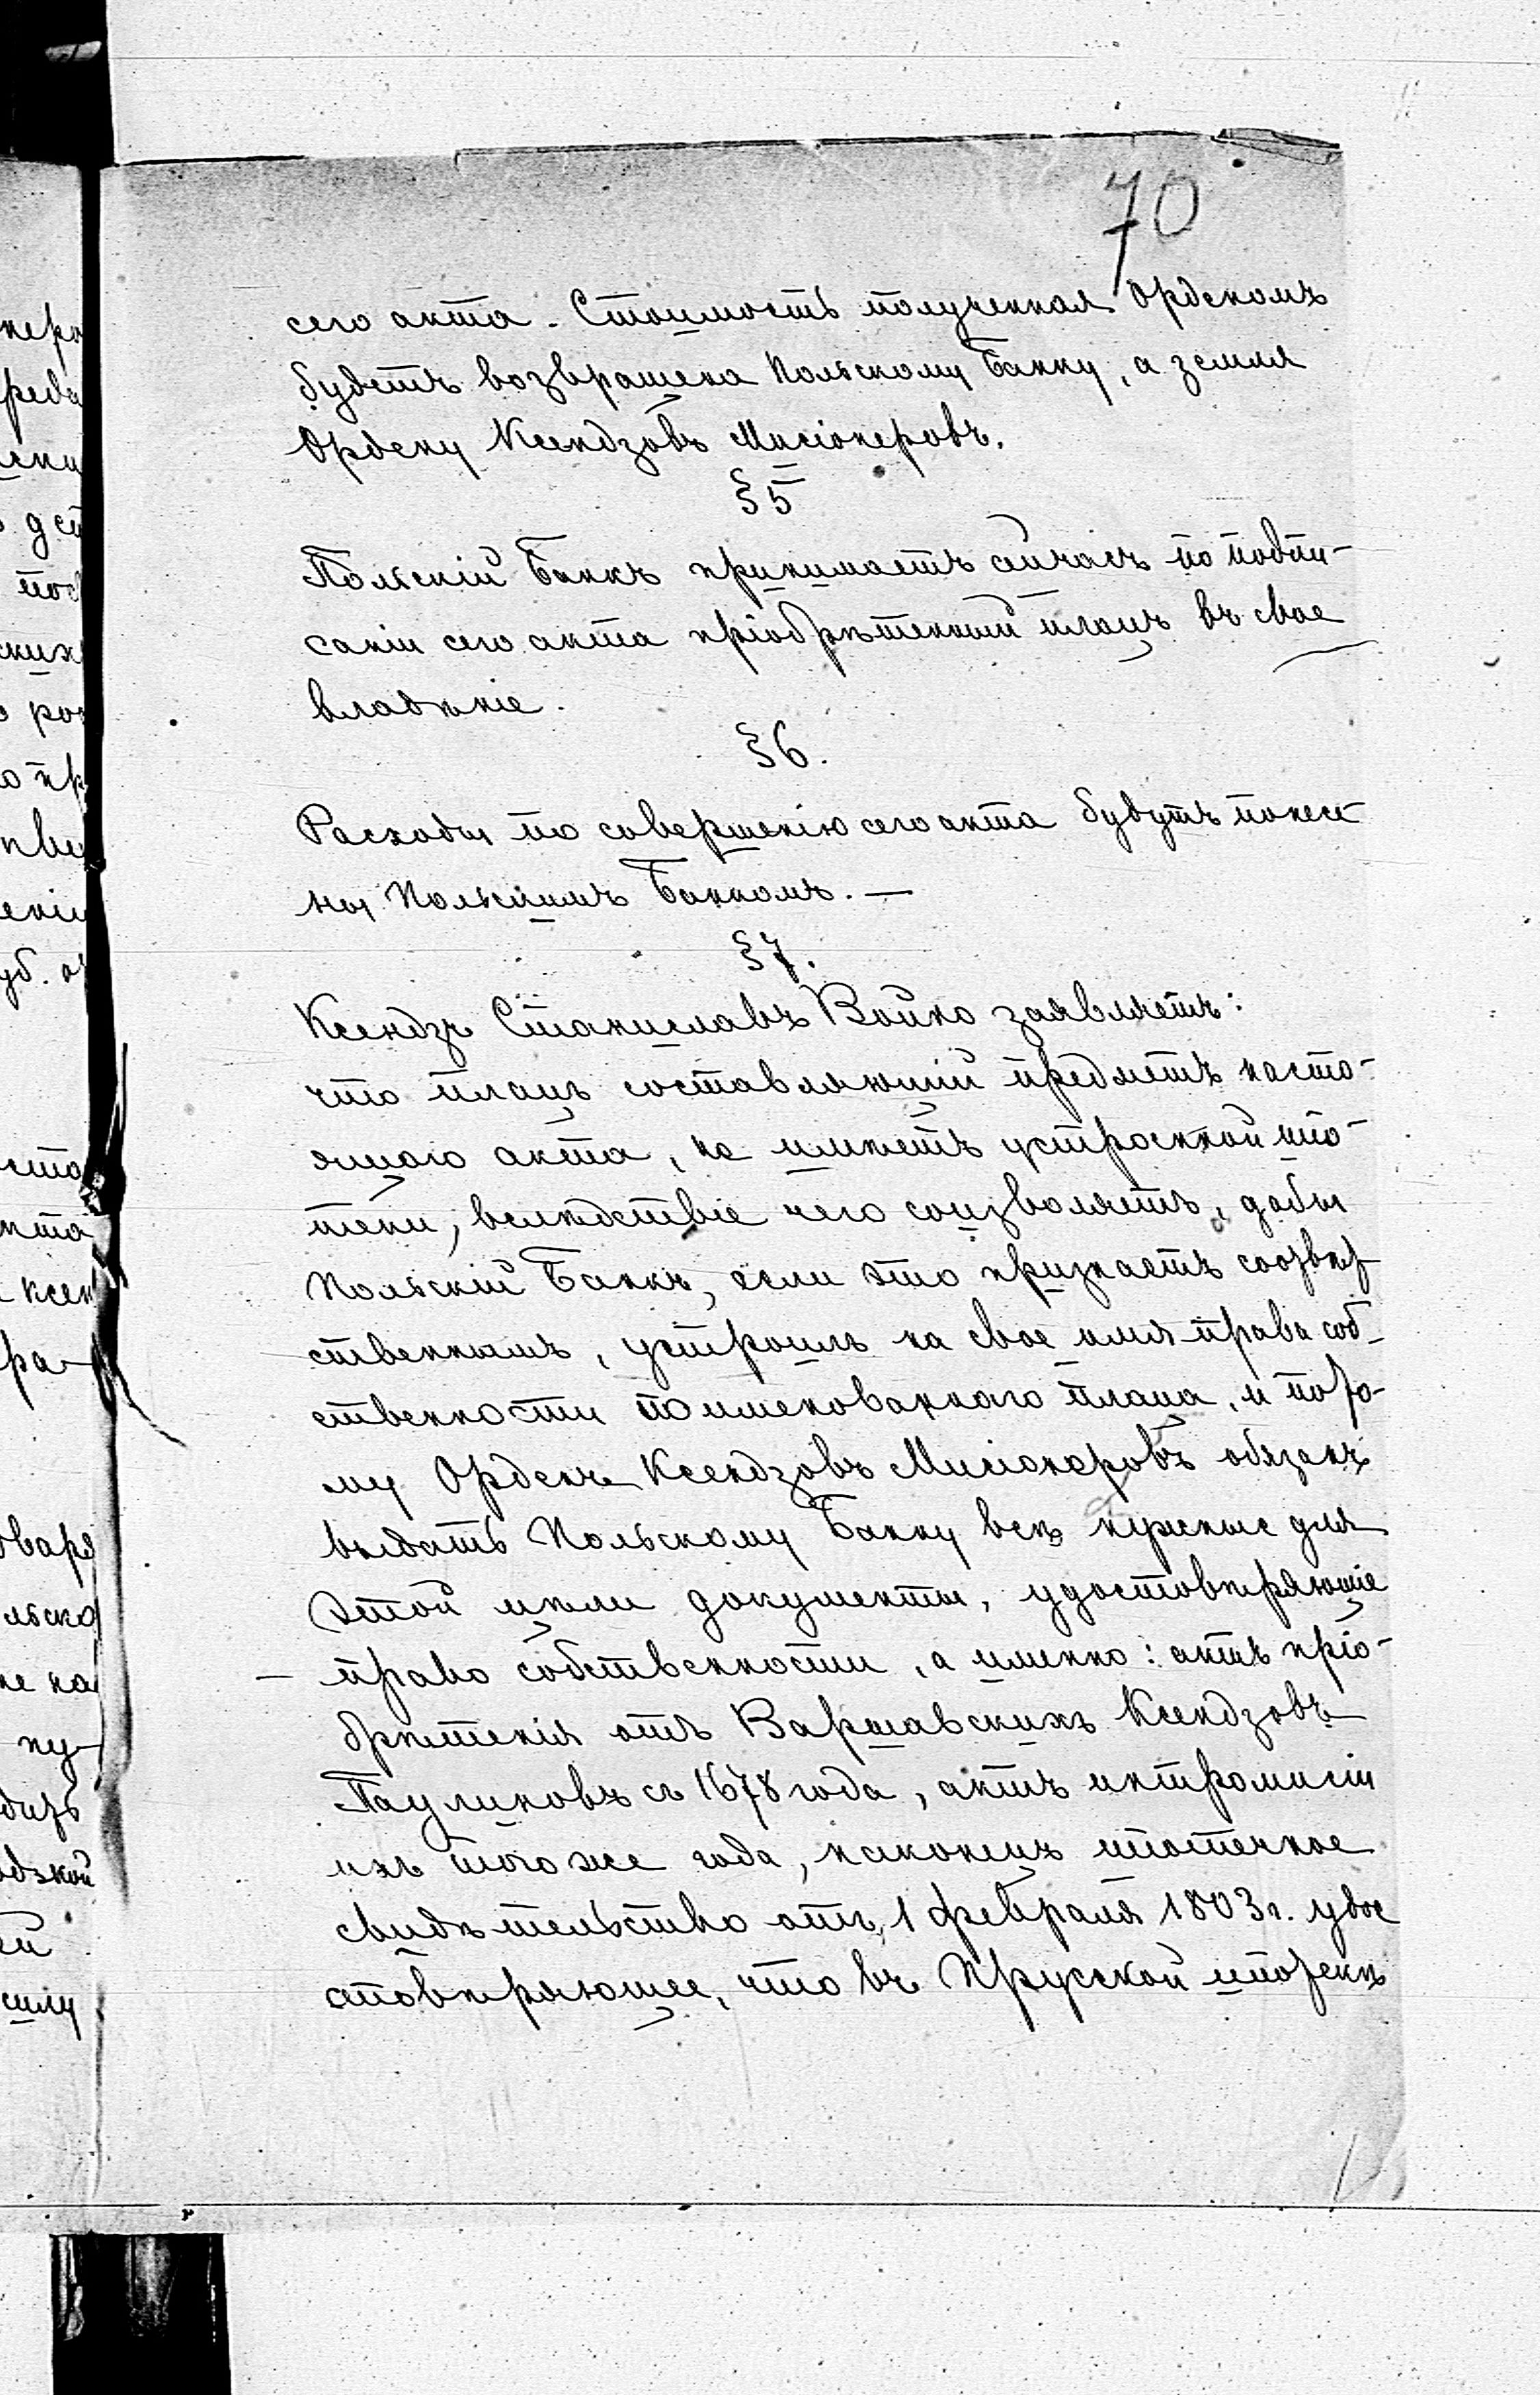 70
сего акта. Стоимость полученная Орденомъ
будетъ возвращена Польскому Банку, а земля
Ордену Ксендзовъ Мисіонеровъ.
§ 5
Польскій Банкъ принимаетъ сейчасъ по подпи-
саніи сего акта пріобрѣтенный плацъ въ свое
владѣніе.
§ 6.
Расходы по совершенію сего акта будутъ понесе
ны Польскимъ Банкомъ. —
§ 7.
Ксендзъ Станиславъ Войно заявляетъ:
что плацъ составляющій предметъ насто-
ящаго акта, не имѣетъ устроенной ипо-
теки, вслѣдствіе чего соизволяетъ, дабы
Польскій Банкъ, если это признаетъ соотвѣт
ственнымъ, устроилъ на свое имя права соб-
ственности поименованнаго плаца, и пото-
му Орденъ Ксендзовъ Мисіонеровъ обязанъ
выдать Польскому Банку всѣ нужные для
этой цѣли документы, удостовѣряющіе
— право собственности, а именно: актъ пріо-
брѣтенія отъ Варшавскихъ Ксендзовъ
Паулиновъ съ 1678 года, актъ интромисіи
ихъ того же года, наконецъ ипотечное
свидѣтельство отъ 1 февраля 1803 г. удос
стовѣряющее, что въ Прусской ипотекѣ